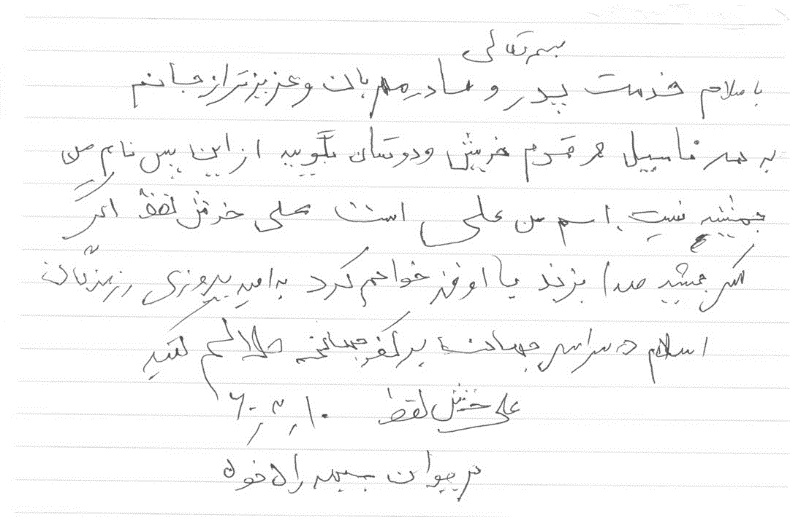 بسمه تعالی
با سلام خدمت پدر و مادر مهربان و عزیزتر از جانم
به همه فامیل هر قوم خویش و دوستان بگویید از این پس نام من
جمشید نیست اسم من علی است علی خوش لفظ اگر
کس جمشید صدا بزند با او قهر خواهم کرد به امید پیروزی رزمندگان
اسلام در سراسر جهان بر کفر حلالم کنید
علی خوش لفظ ۶۰٫۳٫۱۰
مریوان راه خون